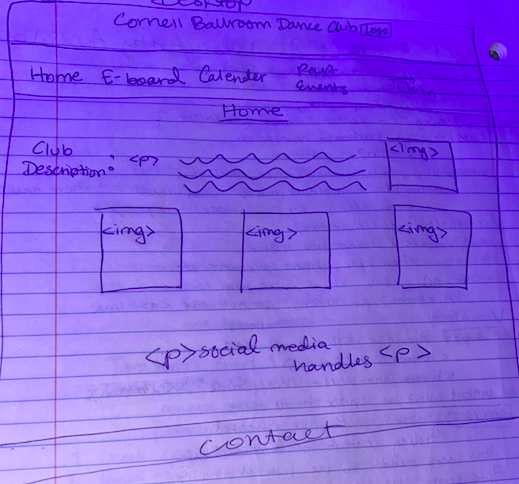 Desktop
Cornell Ballroom Dance Club [Logo]
Home E-board Calender Past Events Join
Home
Club Description: <p>
<img>
<img> <img> <img>
<p> social media
handles <p>
Contact